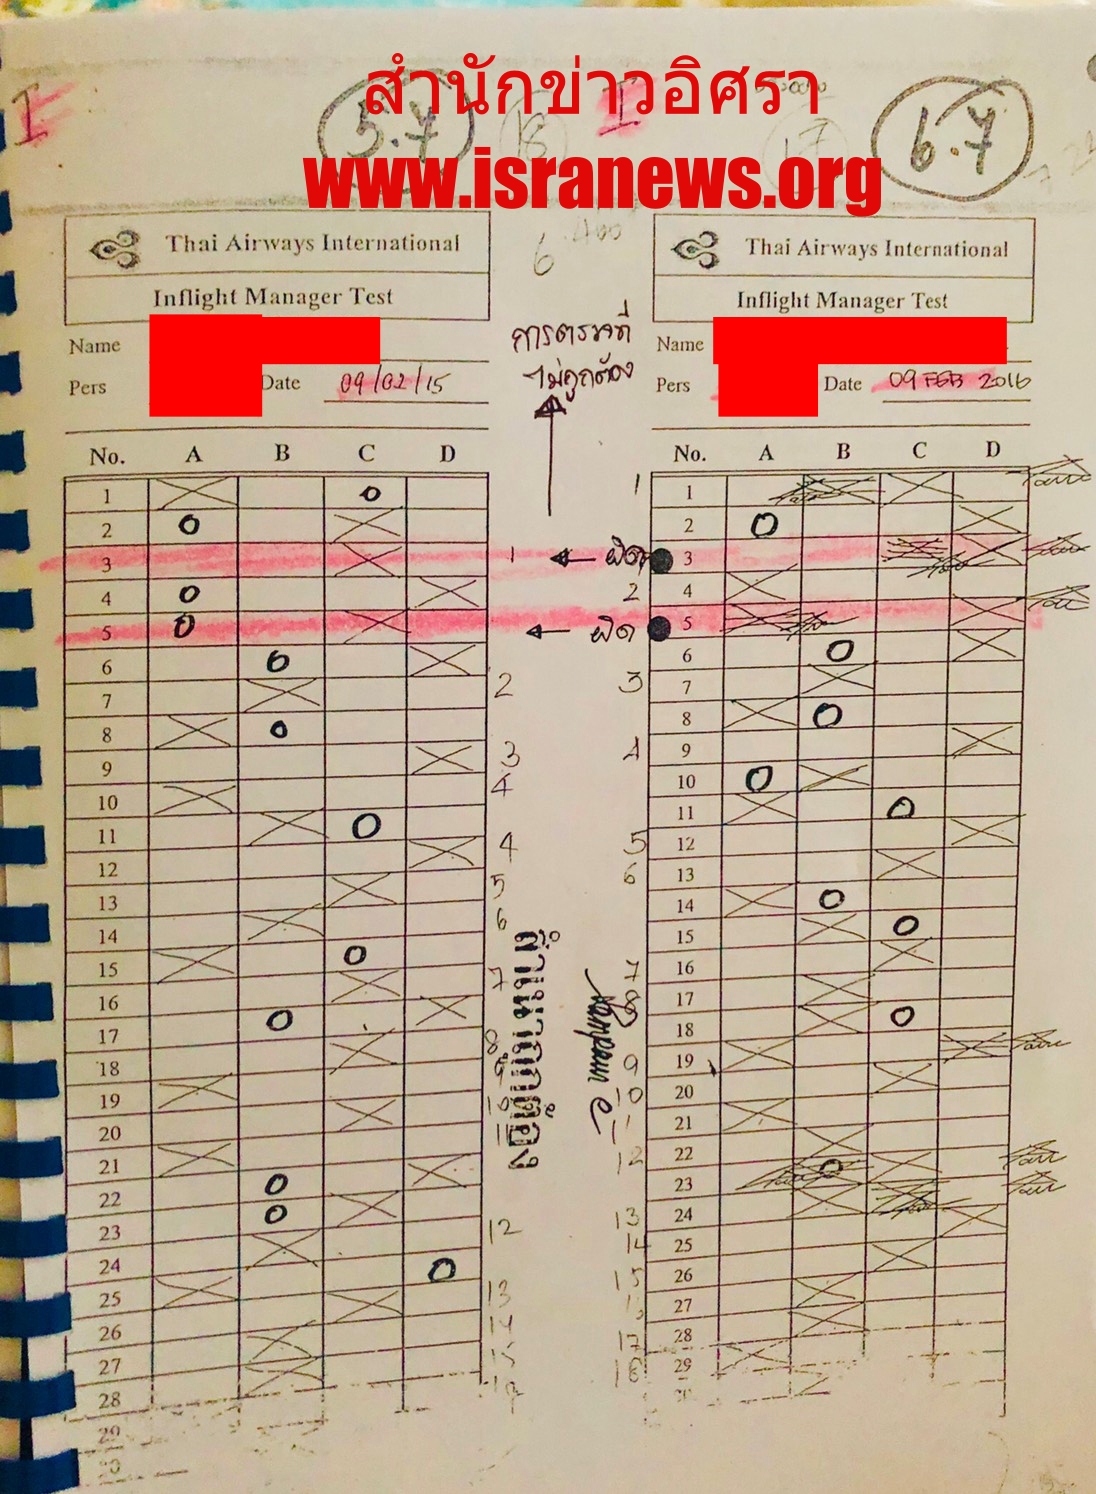 สำนักข่าวอิศรา
www.isranews.org
I
5.7
18
I
17
6.7
Thai Airways International
Inflight Manager Test
Name
Pers
Date 09/02/15
No. A B C D
1
2
3
4
5
6
7
8
9
10
11
12
13
14
15
16
17
18
19
20
21
22
23
24
25
26
27
28
29
30
6
การตรวจที่
ไม่ถูกต้อง
1 ผิด
2
ผิด
2 3
3 4
4
4 5
5 6
6
7 7
8 8
9 9
10 10
11 11
12
12 13
14
13 15
14 16
15 17
18
สำเนาถูกต้อง
Thai Airways International
Inflight Manager Test
Name
Pers
Date 09 FEB 2016
No. A B C D
1
2
3
4
5
6
7
8
9
10
11
12
13
14
15
16
17
18
19
20
21
22
23
24
25
26
27
28
29